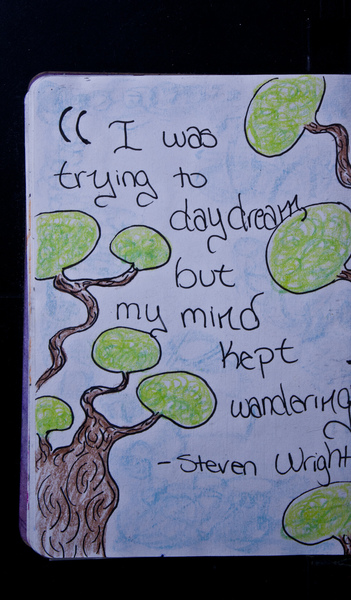 “I was
trying to
daydream,
but
my mind
kept
wandering
- Steven Wright